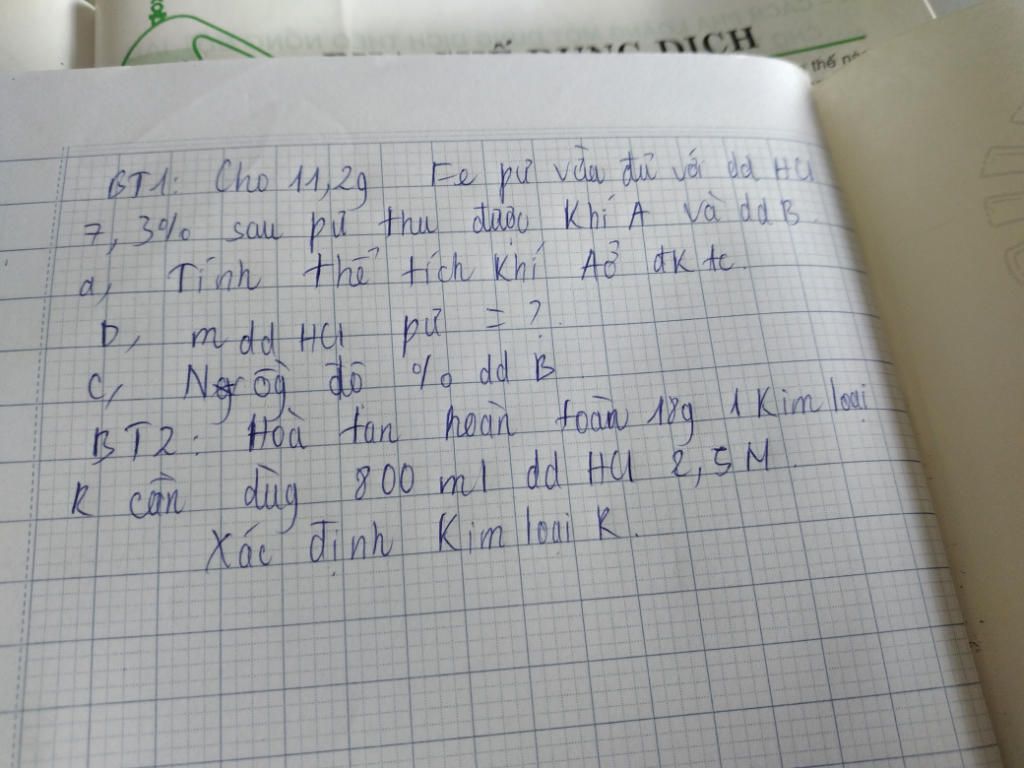 DUNG DỊCH
thế nà
BT1: Cho 11,2g Fe pứ vừa đủ với dd HCl
7,3% sau pứ thu được khí A và dd B.
a, Tính thể tích khí A ở đktc.
b, m dd HCl pứ = ?.
c, Nồg độ % dd B
BT2: Hoà tan hoàn toàn 18g 1 Kim loại
R cần dùg 800 ml dd HCl 2,5M.
Xác định Kim loại R.